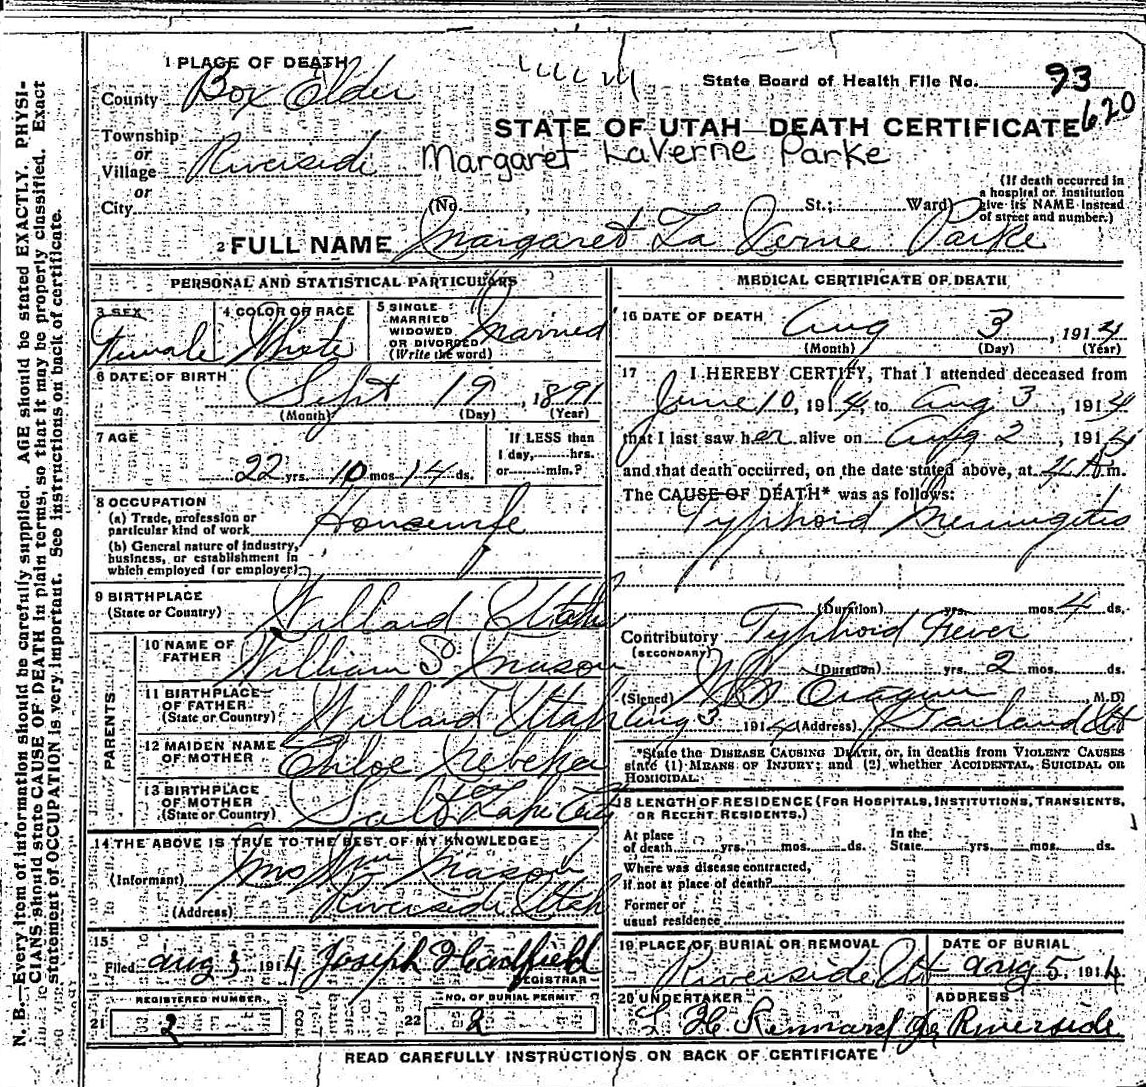 N. B.—Every item of information should be carefully supplied. AGE should be stated EXACTLY. PHYSI-
CIANS should state CAUSE OF DEATH in plain terms, so that it may be properly classified. Exact
statement of OCCUPATION is very important. See instructions on back of certificate.
1 PLACE OF DEATH
County Box Elder
State Board of Health File No. 93
620
STATE OF UTAH—DEATH CERTIFICATE
Township
or
Village Riverside
Margaret LaVerne Parke
or
City (No. , St.; Ward)
(If death occurred in
a hospital or institution
give its NAME instead
of street and number.)
2 FULL NAME Margaret La Verne Parke
PERSONAL AND STATISTICAL PARTICULARS
3 SEX Female
4 COLOR OR RACE White
5 SINGLE
MARRIED
WIDOWED
OR DIVORCED
(Write the word) Married
6 DATE OF BIRTH Sept 19, 1891
(Month) (Day) (Year)
7 AGE
22 yrs. 10 mos. 14 ds.
If LESS than
1 day, hrs.
or min.?
8 OCCUPATION
(a) Trade, profession or
particular kind of work Housewife
(b) General nature of industry,
business, or establishment in
which employed (or employer)
9 BIRTHPLACE
(State or Country) Willard Utah
PARENTS
10 NAME OF
FATHER William S. Mason
11 BIRTHPLACE
OF FATHER
(State or Country) Willard Utah
12 MAIDEN NAME
OF MOTHER Chloe
13 BIRTHPLACE
OF MOTHER
(State or Country) Salt Lake City
14 THE ABOVE IS TRUE TO THE BEST OF MY KNOWLEDGE
(Informant) Mrs Wm Mason
(Address) Riverside Utah
15
Filed Aug 3 1914 Joseph Hadfield
REGISTRAR
REGISTERED NUMBER.
21 2
NO. OF BURIAL PERMIT
22 2
MEDICAL CERTIFICATE OF DEATH
16 DATE OF DEATH Aug 3, 1914
(Month) (Day) (Year)
17 I HEREBY CERTIFY, That I attended deceased from
June 10, 1914, to Aug 3, 1914
that I last saw her alive on Aug 2, 1914
and that death occurred, on the date stated above, at 4 A.m.
The CAUSE OF DEATH* was as follows:
Typhoid Meningitis
(Duration) yrs. mos. 4 ds.
Contributory Typhoid Fever
(SECONDARY)
(Duration) yrs. 2 mos. ds.
(Signed) M.D.
Aug 3 1914 (Address) Garland Ut
*State the DISEASE CAUSING DEATH, or, in deaths from VIOLENT CAUSES
state (1) MEANS OF INJURY; and (2) whether ACCIDENTAL, SUICIDAL OR
HOMICIDAL.
18 LENGTH OF RESIDENCE (FOR HOSPITALS, INSTITUTIONS, TRANSIENTS,
OR RECENT RESIDENTS.)
At place
of death yrs. mos. ds.
In the
State yrs. mos. ds.
Where was disease contracted,
if not at place of death?
Former or
usual residence
19 PLACE OF BURIAL OR REMOVAL
Riverside Ut
DATE OF BURIAL
Aug 5, 1914
20 UNDERTAKER
ADDRESS
Riverside
READ CAREFULLY INSTRUCTIONS ON BACK OF CERTIFICATE